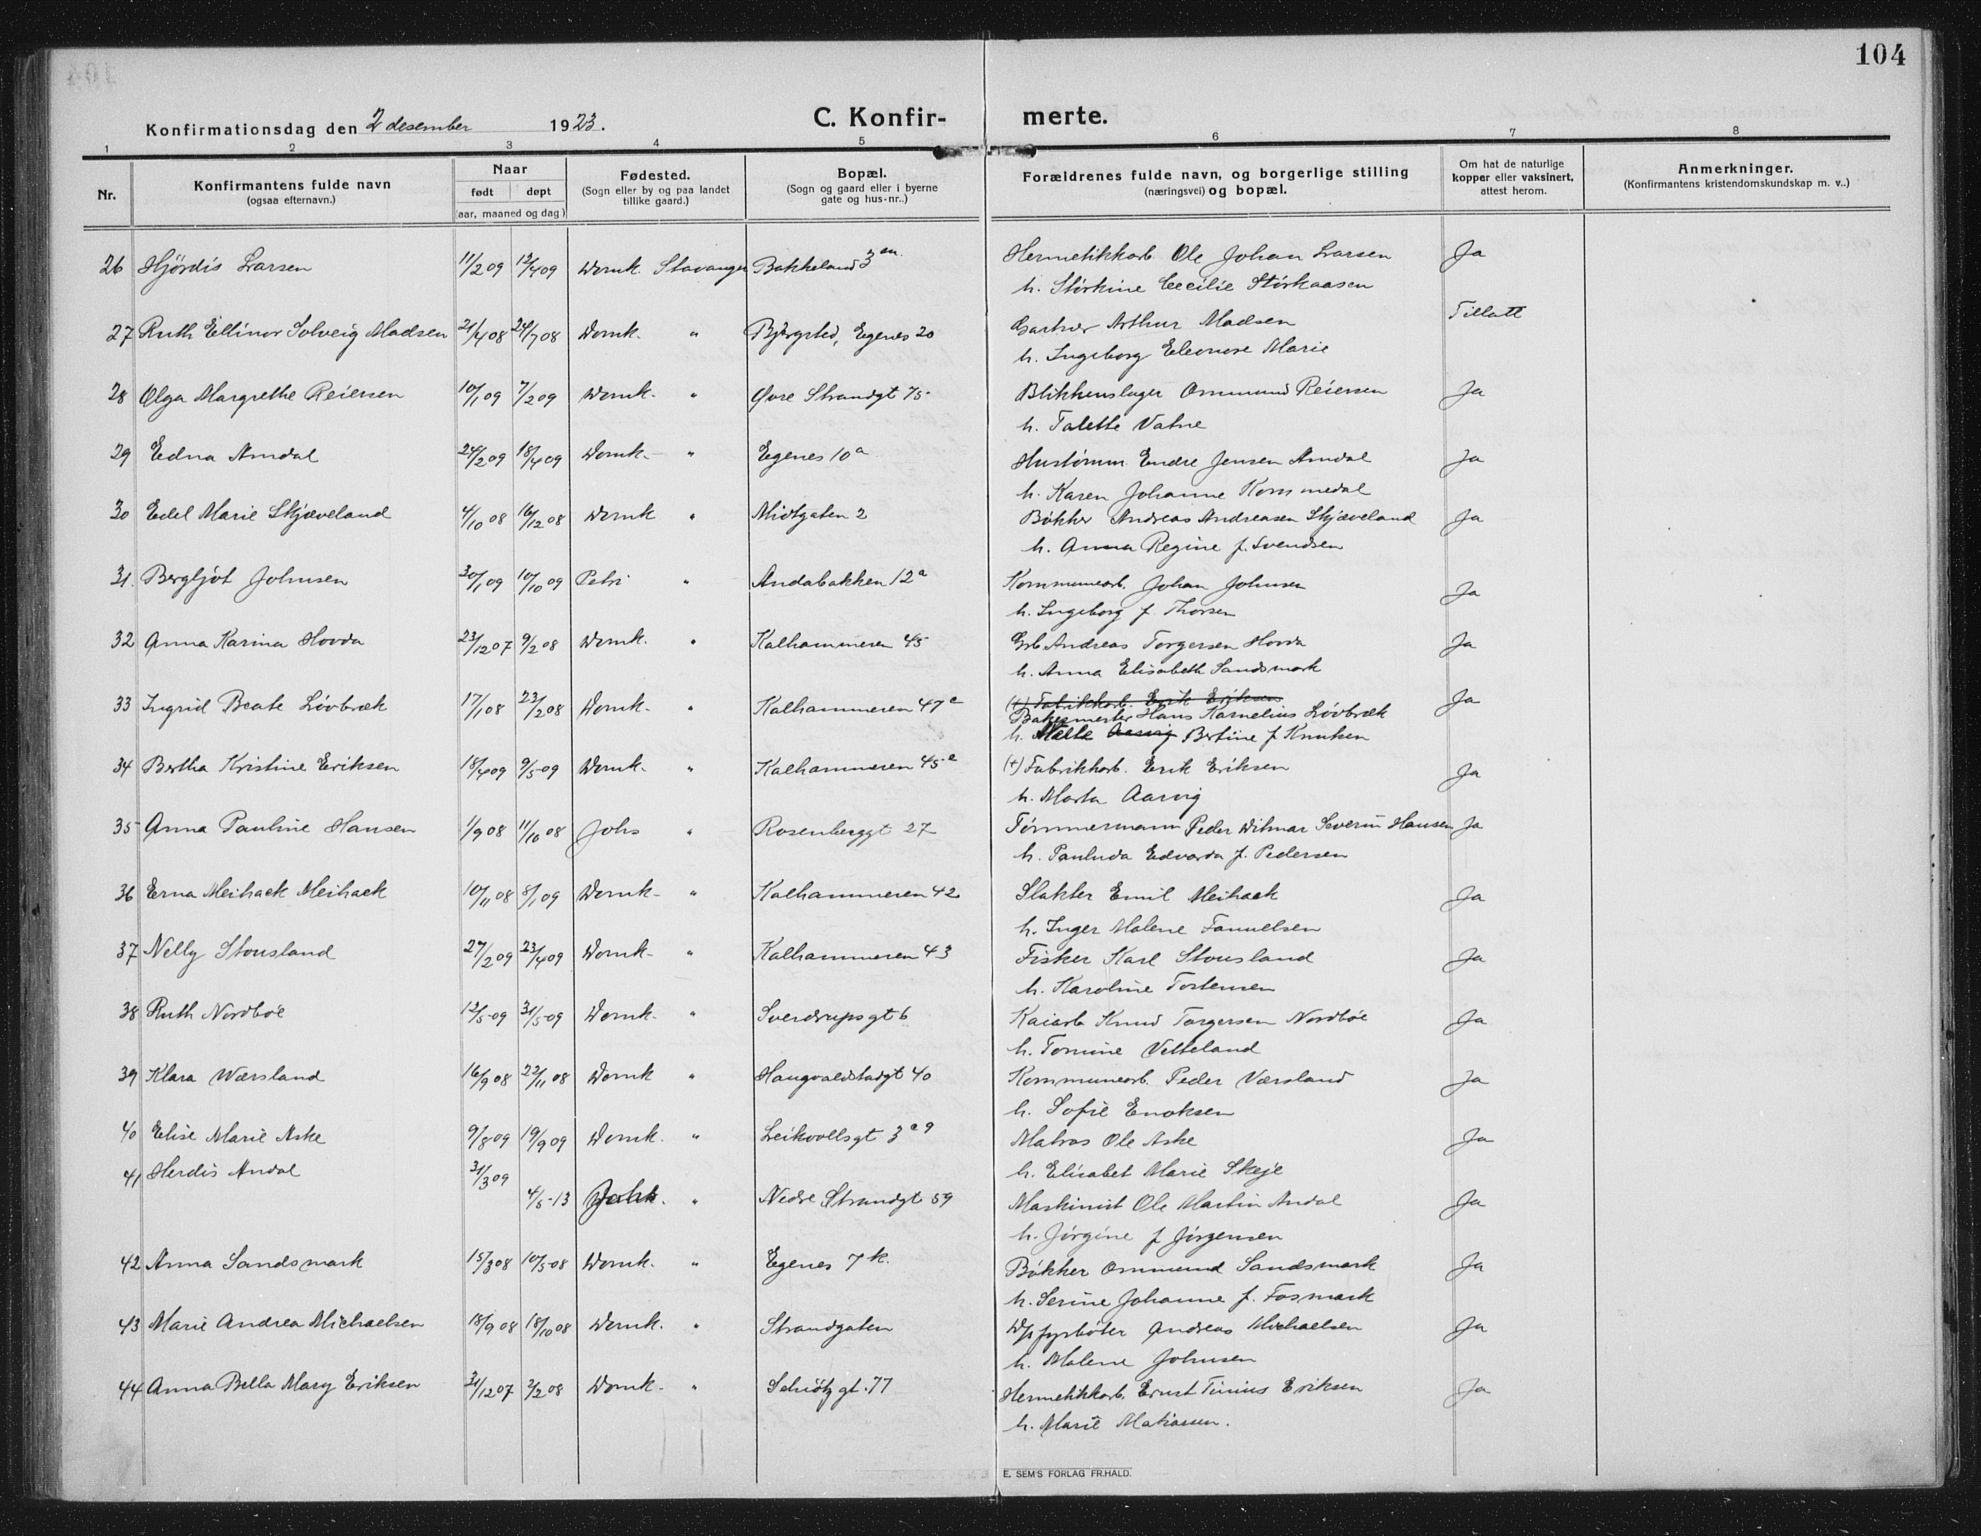 104
Konfirmationsdag den 2 desember 1923.
C. Konfir- merte.
1 2 3 4 5 6 7 8
Nr.
Konfirmantens fulde navn
(ogsaa efternavn.)
Naar
født døpt
(aar, maaned og dag)
Fødested.
(Sogn eller by og paa landet
tillike gaard.)
Bopæl.
(Sogn og gaard eller i byerne
gate og hus-nr..)
Forældrenes fulde navn, og borgerlige stilling
(næringsvei) og bopæl.
Om hat de naturlige
kopper eller vaksinert,
attest herom.
Anmerkninger.
(Konfirmantens kristendomskundskap m. v..)
26 Hjördis Larsen 11/2 09 12/4 09 Domk. Stavanger Bakkeland 3 Hermetikkarb. Ole Johan Larsen Ja
h. Störkine Cecilie Störkaasen
27 Ruth Ellinor Solveig Madsen 21/4 08 24/7 08 Domk. " Bjergsted, Egenes 20 Gartner Arthur Madsen Tillatt
h. Ingeborg Eleonore Marie
28 Olga Margrethe Reiersen 10/1 09 7/2 09 Domk. " Øvre Strandgt 75 Blikkenslager Ommund Reiersen Ja
h. Talette Vatne
29 Edna Amdal 24/2 09 18/4 09 Domk. " Egenes 10a Hustømm. Endre Jensen Amdal Ja
h. Karen Johanne Kommedal
30 Edel Marie Skjæveland 4/10 08 16/12 08 Domk " Midtgaten 2 Bøkker Andreas Andreasen Skjæveland Ja
h. Anna Regine f. Svendsen
31. Bergljot Johnsen 30/1 09 10/10 09 Petri " Andabakken 12a Kommunearb. Johan Johnsen Ja
h. Ingeborg f. Thorsen
32 Anna Karina Hovda 23/12 07 9/2 08 Domk. " Kalhammeren 45 Grb Andreas Torgersen Hovda Ja
h. Anna Elisabeth Sandsmark
33 Ingrid Beate Lövbræk 17/1 08 23/2 08 Domk. " Kalhammeren 47 (+) Fabrikkarb. Erik Eriksen Ja
Bakermester Hans Kornelius Lövbræk
h. Malle Aarvig Bertine f Knutsen
34 Bertha Kristine Eriksen 18/4 09 9/5 09 Domk. " Kalhammeren 45 (+) Fabrikkarb. Erik Eriksen Ja
h. Marta Aarvig
35 Anna Pauline Hansen 1/9 08 11/10 08 Johs " Rosenberggt 27 Tømmermann Peder Ditmar Severin Hansen Ja
h. Paulnda Edvarda f. Pedersen
36 Erna Meihack Meihack 10/11 08 8/1 09 Domk. " Kalhammeren 42 Slakter Emil Meihack Ja
h. Inger Malene Samuelsen
37 Nelly Stousland 27/2 09 23/4 09 Domk. " Kalhammeren 43 Fisker Karl Stousland Ja
h. Karoline Torstensen
38 Ruth Nordböe 12/5 09 31/5 09 Domk. " Sverdrupsgt 6 Kaiarb Knud Torgersen Nordböe Ja
h. Tomine Velteland
39 Klara Wærsland 16/9 08 22/11 08 Domk " Haugvaldstadgt 40 Kommunearb. Peder Værsland Ja
h. Sofie Enoksen
40 Elise Marie Aske 9/8 09 19/9 09 Domk. " Leikvollsgt 3 Matros Ole Aske Ja
h. Elisabet Marie Skeje
41 Herdis Andal 31/3 09 4/5 13 Joh. " Nedre Strandgt 59 Maskinist Ole Martin Andal Ja
h. Jørgine f Jørgensen
42 Anna Sandsmark 15/3 08 10/5 08 Domk. " Egenes 7k. Bøkker Ommund Sandsmark Ja
h. Serine Johanne f. Fosmark
43 Marie Andrea Michaelsen 18/9 08 18/10 08 Domk. " Strandgaten D/s fyrbøter Andreas Michaelsen Ja
h. Malene Johnsen
44 Anna Bella Mary Eriksen 31/12 07 2/2 08 Domk. " Schiötzgt. 77 Hermetikkarb. Ernst Tinius Eriksen Ja
h. Marie Matiassen.
E. SEM'S FORLAG FR.HALD.